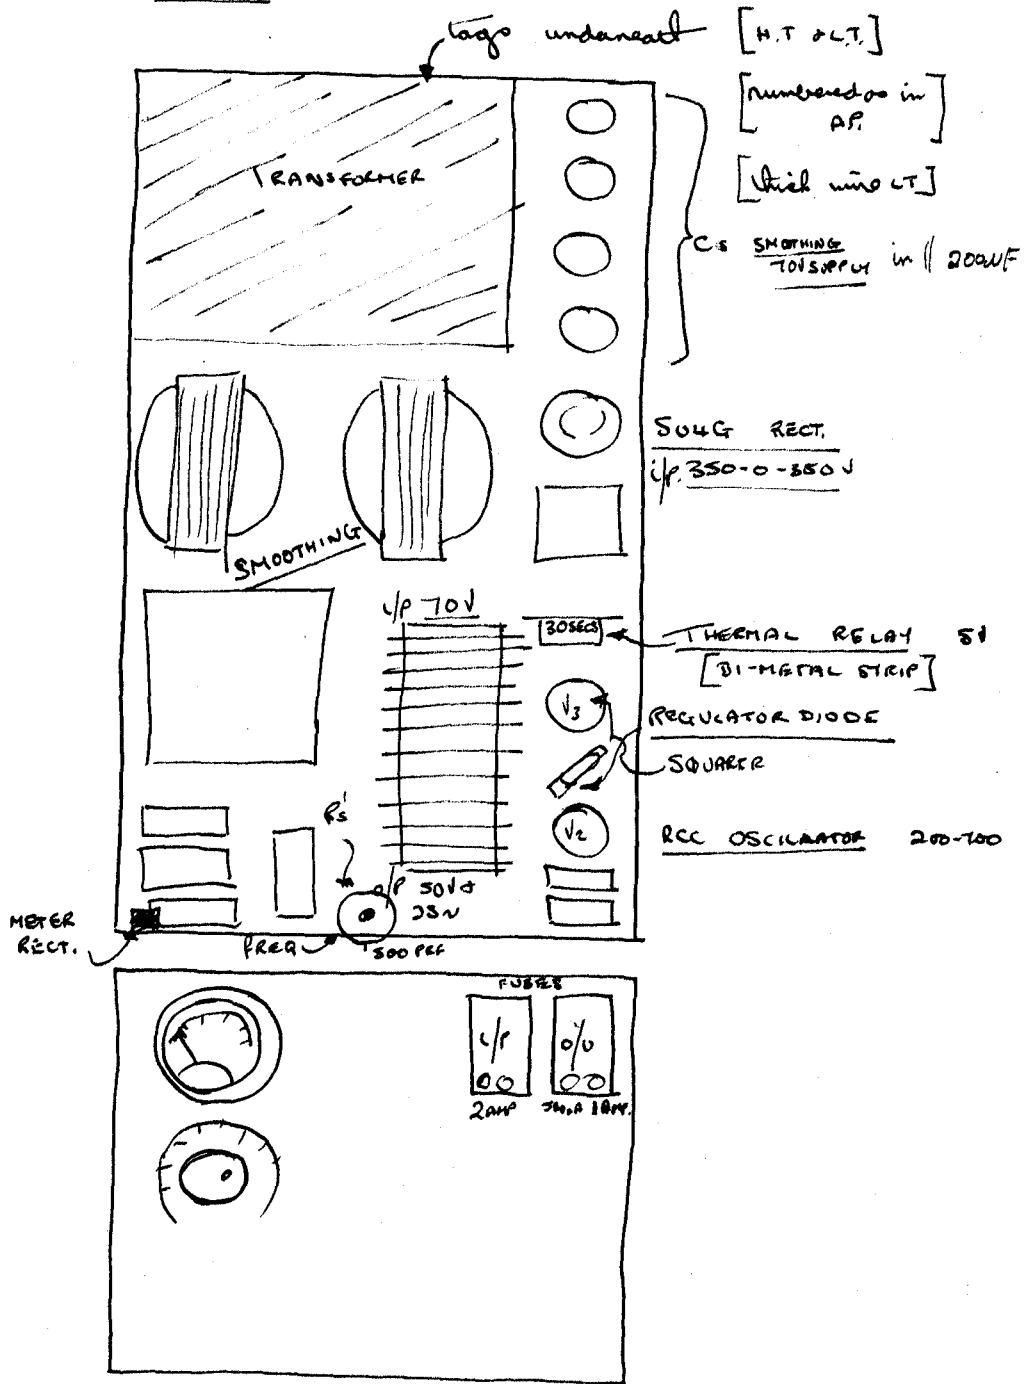 tags underneath [H.T & L.T.]
[numbered as in
AP.]
[thick wire LT]
TRANSFORMER
Cs SMOOTHING
70V SUPPLY in || 200UF
5U4G RECT.
i/p. 350-0-350V
SMOOTHING
i/p 70V
30SECS
THERMAL RELAY 5V
[BI-METAL STRIP]
V3
REGULATOR DIODE
SQUARER
Rs
V2
RCC OSCILLATOR 200-700
o/P 50V
METER
RECT.
FREQ
500 PRF
FUSES
i/P
2 AMP
1 AMP.